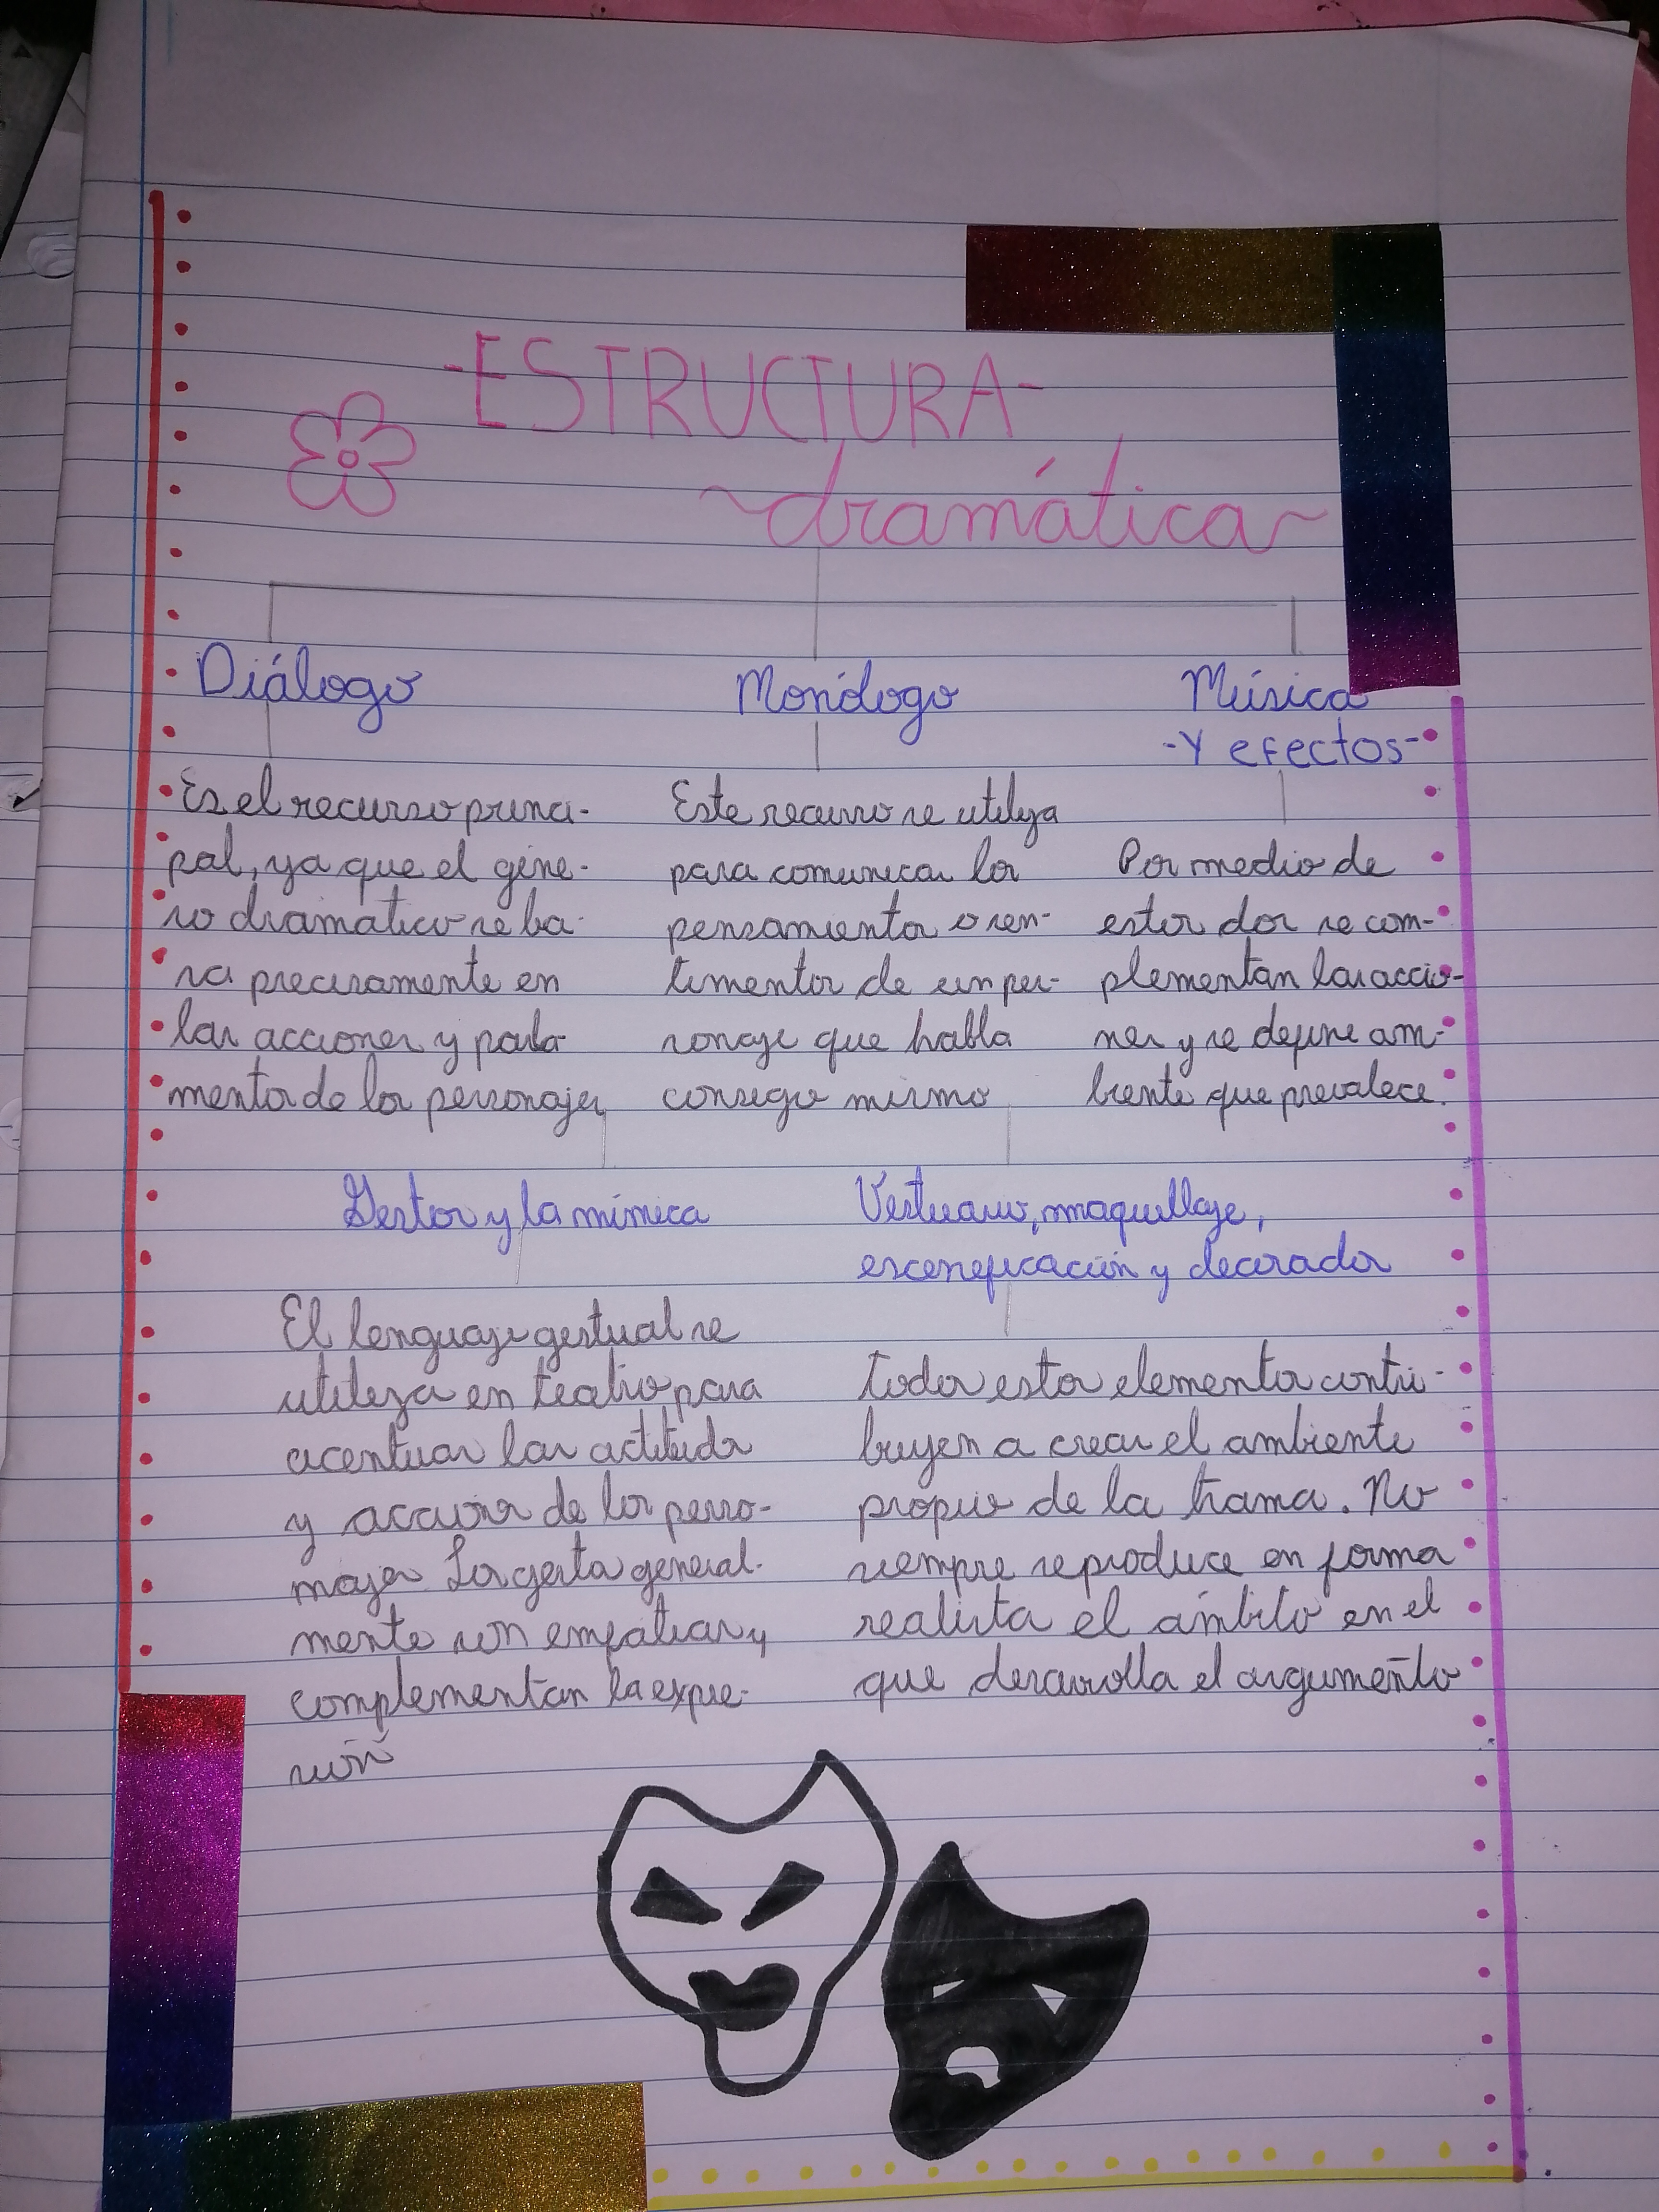 -ESTRUCTURA-
~dramática~
Diálogo
Es el recurso princi-
pal, ya que el géne-
ro dramatico se ba-
sa precisamente en
las acciones y parla-
mentos de los personajes
Monólogo
Este recurso se utiliza
para comunicar los
pensamientos o sen-
timentos de un per-
sonaje que habla
consigo mismo
Música
-Y efectos-
Por medio de
estos dos se com-
plementan las accio-
nes y se define am-
biente que prevalece.
Gestos y la mímica
El lenguaje gestual se
utiliza en teatro para
acentuar las actituds
y accions de los perso-
najes Los gestos general-
mente son empaticas y
complementan la expre-
sión
Vestuario, maquillaje,
escenificación y decorados
Todos estos elementos contri-
buyen a crear el ambiente
propio de la trama. No
siempre reproduce en forma
realista el ámbito en el
que desarrolla el argumento